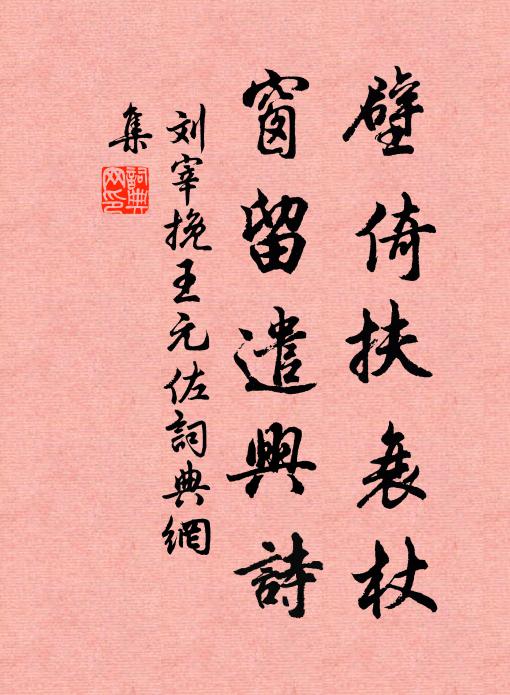 壁倚扶衰杖
窗留遣興詩
刘宰挽王元佐詞典網
集
詞典网印